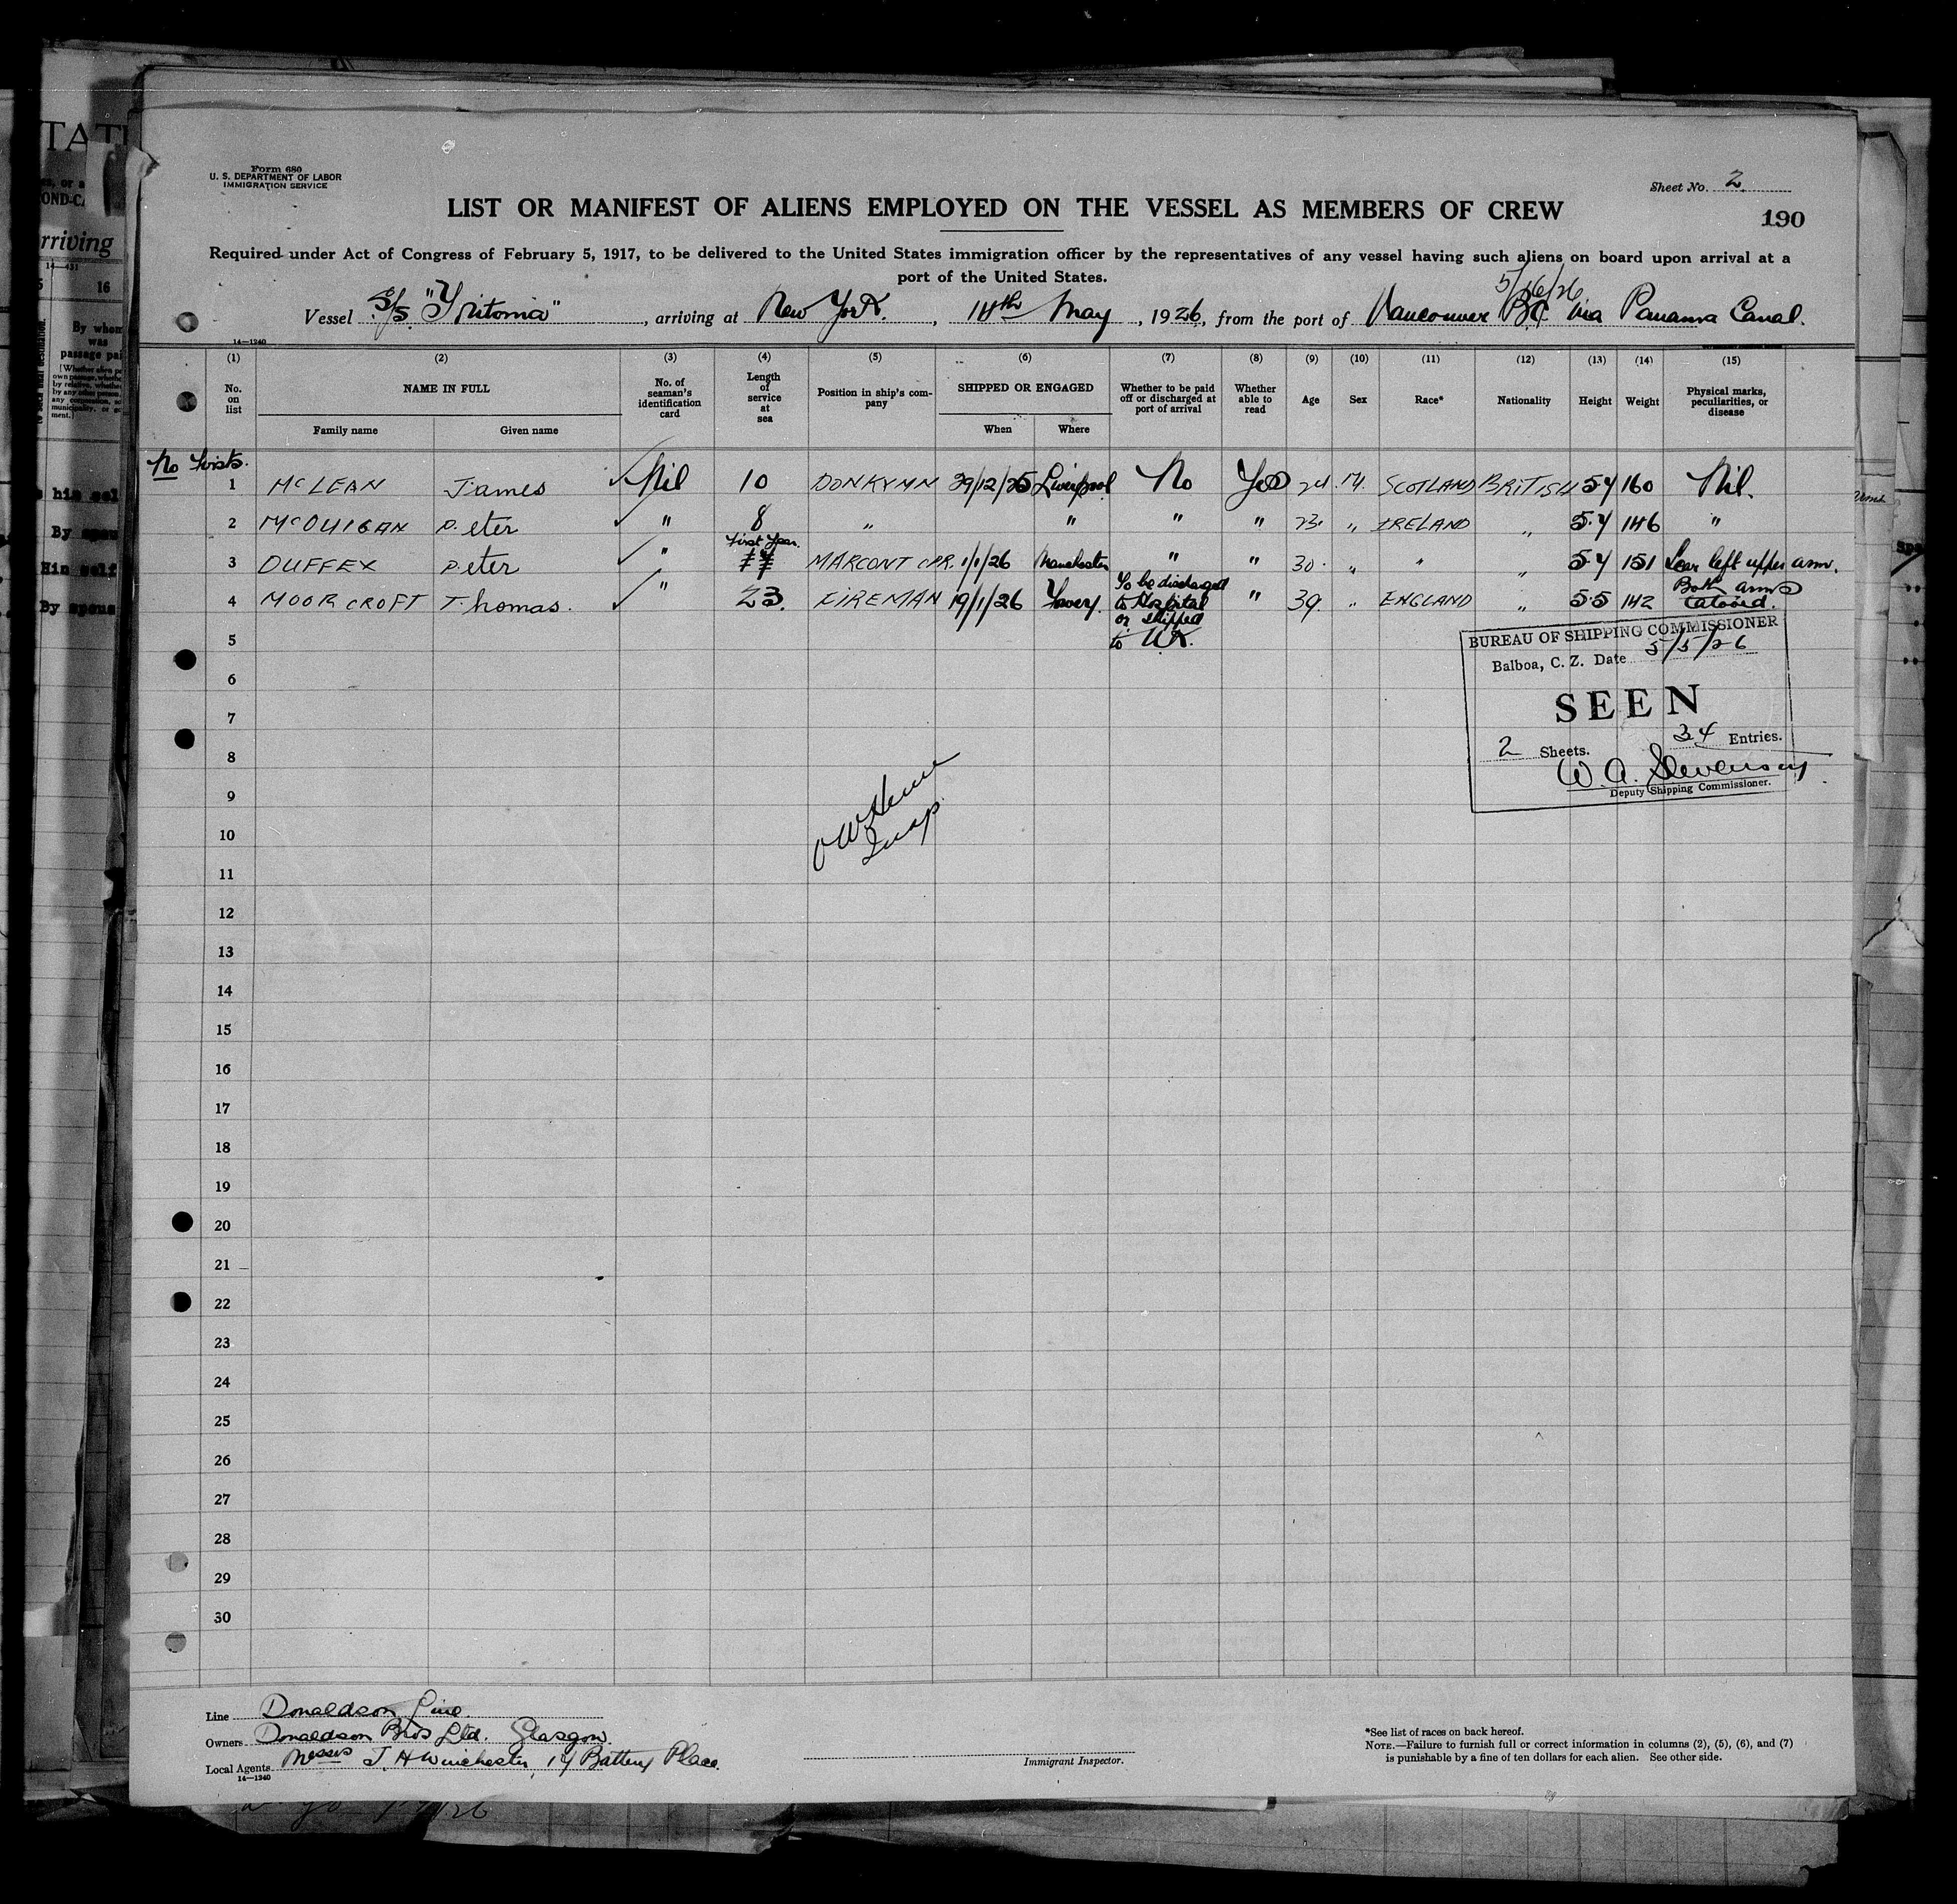 Form 680
U. S. DEPARTMENT OF LABOR
IMMIGRATION SERVICE
Sheet No. 2
LIST OR MANIFEST OF ALIENS EMPLOYED ON THE VESSEL AS MEMBERS OF CREW
190
Required under Act of Congress of February 5, 1917, to be delivered to the United States immigration officer by the representatives of any vessel having such aliens on board upon arrival at a
port of the United States.
5/16/26
Vessel S/S "Tritonia", arriving at New York., 14th May, 1926, from the port of Vancouver B.C. via Panama Canal.
14—1240
(1) (2) (3) (4) (5) (6) (7) (8) (9) (10) (11) (12) (13) (14) (15)
No. on list
NAME IN FULL
Family name Given name
No. of seaman's identification card
Length of service at sea
Position in ship's company
SHIPPED OR ENGAGED
When Where
Whether to be paid off or discharged at port of arrival
Whether able to read
Age
Sex
Race*
Nationality
Height
Weight
Physical marks, peculiarities, or disease
No
1 McLEAN James Nil 10 DONKYMN 29/12/25 Liverpool No Yes 24 M. SCOTLAND BRITISH 5 4 160 Nil.
2 McQUIGAN Peter " 8 " " " " 23 " IRELAND " 5.4 146 "
First Year.
3 DUFFEX Peter " MARCONI OPR. 1/1/26 Manchester " " 30 " " " 5 4 151 Scar left upper arm.
4 MOORCROFT Thomas. " 23. FIREMAN 19/1/26 To be discharged to Hospital or shipped to U.K. " 39. " ENGLAND " 5 5 142 Both arms tatooed.
5
6
7
8
9
10
11
12
13
14
15
16
17
18
19
20
21
22
23
24
25
26
27
28
29
30
BUREAU OF SHIPPING COMMISSIONER
Balboa, C. Z. Date 5/5/26
SEEN
2 Sheets. 34 Entries.
W. A. Stevenson
Deputy Shipping Commissioner.
Insp
Line Donaldson Line
Owners Donaldson Bros Ltd. Glasgow.
Local Agents Messrs J. H Winchester, 17 Battery Place.
14—1240
Immigrant Inspector.
*See list of races on back hereof.
NOTE.—Failure to furnish full or correct information in columns (2), (5), (6), and (7)
is punishable by a fine of ten dollars for each alien. See other side.
TAT
OND-CA
rriving
14—431
16
By whom
was
passage pai
him sel
By spou
Him self
By spous